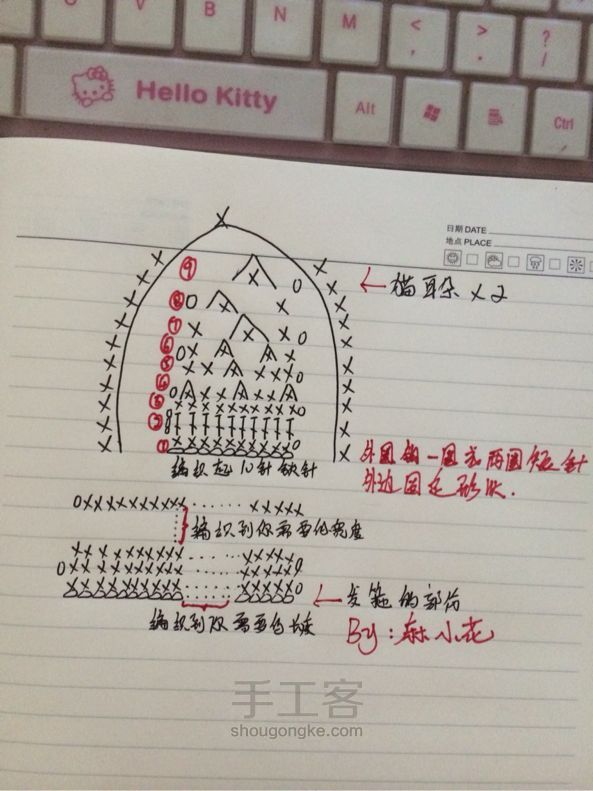 V B N M < , > . ? /
Hello Kitty Alt Ctrl
日期 DATE
地点 PLACE
← 猫耳朵 x 2
⑨
⑧
⑦
⑥
⑤
④
③
②
①
编织起10针锁针
外圈钩一圈或两圈短针
外边固定形状.
编织到你需要的宽度
← 发箍的部分
编织到你需要的长度
By:蔴小花
手工客
shougongke.com